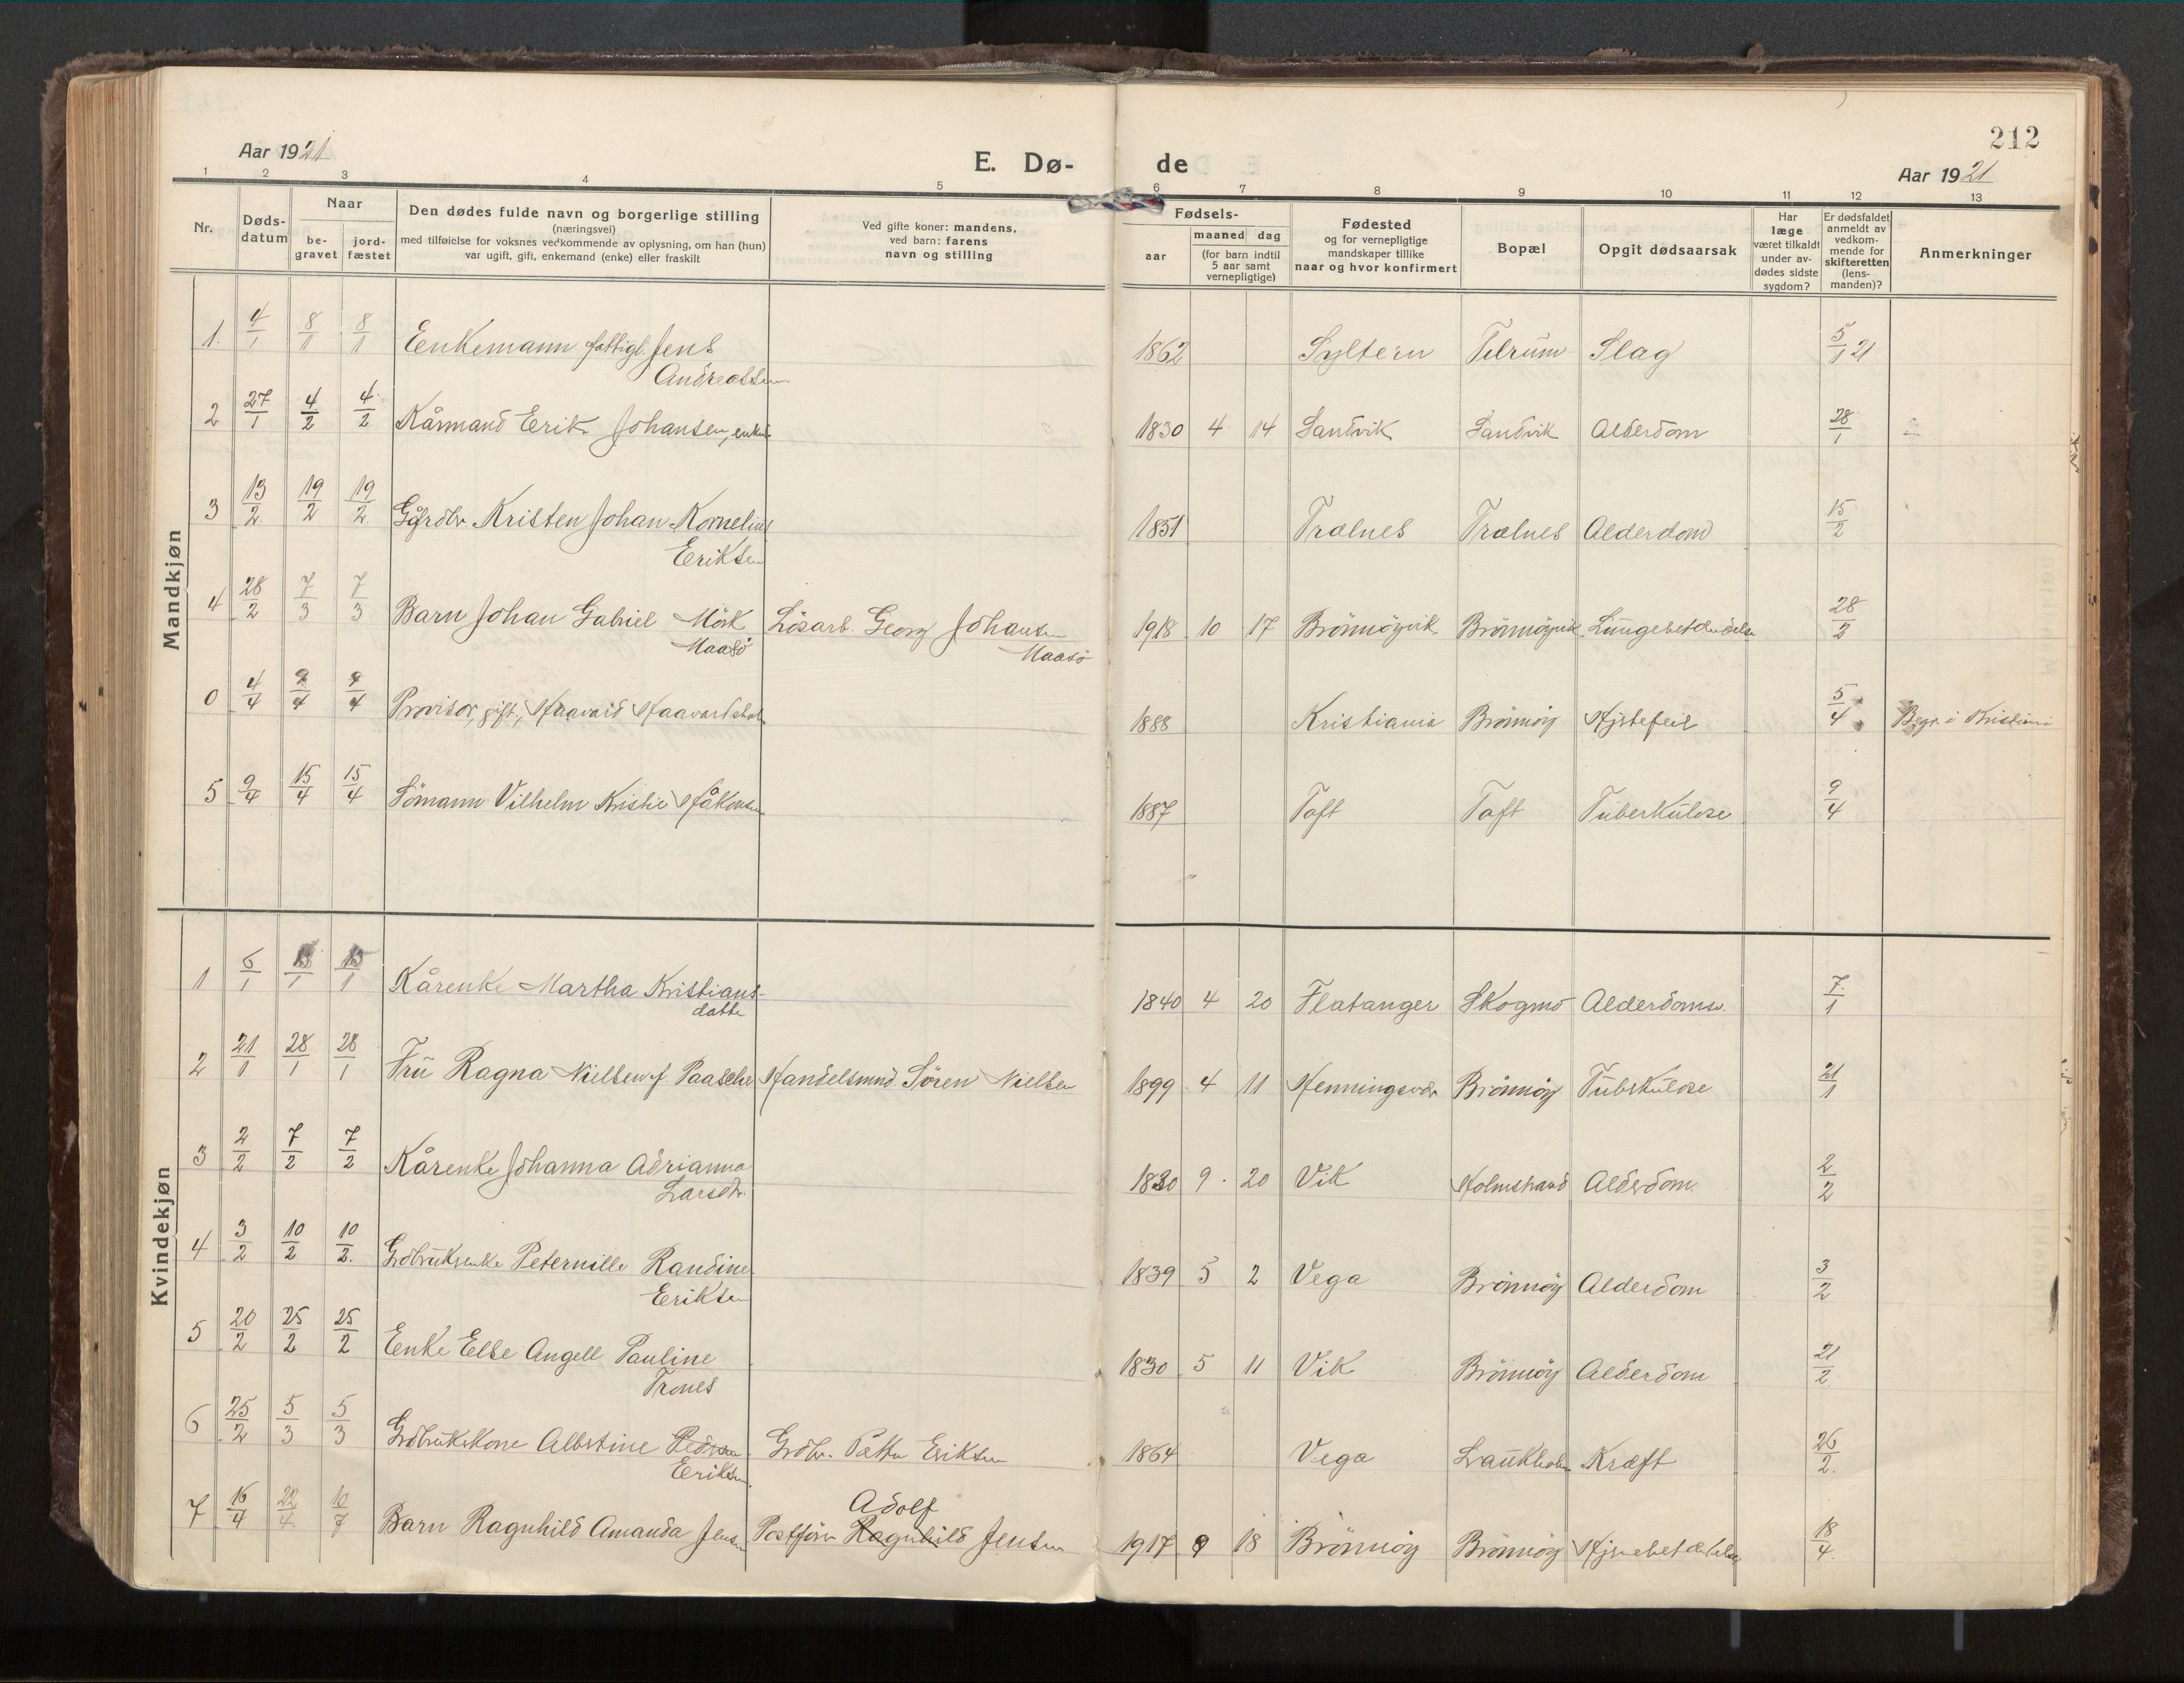 212
Aar 1921
E. Dø-
de
Aar 1921
1 2 3 4 5 6 7 8 9 10 11 12 13
Nr.
Døds-
datum
Naar
be-
gravet
jord-
fæstet
Den dødes fulde navn og borgerlige stilling
(næringsvei)
med tilføielse for voksnes vedkommende av oplysning, om han (hun)
var ugift, gift, enkemand (enke) eller fraskilt
Ved gifte koner: mandens,
ved barn: farens
navn og stilling
Fødsels-
aar
maaned dag
(for barn indtil
5 aar samt
vernepligtige)
Fødested
og for vernepligtige
mandskaper tillike
naar og hvor konfirmert
Bopæl
Opgit dødsaarsak
Har
læge
været tilkaldt
under av-
dødes sidste
sygdom?
Er dødsfaldet
anmeldt av
vedkom-
mende for
skifteretten
(lens-
manden)?
Anmerkninger
Mandkjøn
1. 4/1 8/1 8/1 Enkemann fattigl. Jens 1862 Syltern Tilrum Slag 5/1 21
Andreassen
2 27/1 4/2 4/2 Kårmand Erik Johansen, enkem 1830 4 14 Sandvik Sandvik Alderdom 28/1
3 13/2 19/2 19/2 Gårdbr Kristen Johan Kornelius 1851 Trælnes Trælnes Alderdom 15/2
Eriksen
4 28/2 7/3 7/3 Barn Johan Gabriel Mörk Lösarb. Georg Johansen 1918 10 17 Brönnöyvik Brönnöyvik Lungebetændelse 28/2
Maasö Maasö
0 4/4 9/4 9/4 Provisor, gift, Haavard Haavardsholm 1888 Kristiania Brönnöy Hjertefeil 5/4 Begr. i Kristiania
5 9/4 15/4 15/4 Sömann Vilhelm Kristie Håkonsen 1887 Toft Toft Tuberkulose 9/4
Kvindekjøn
1 6/1 13/1 13/1 Kårenke Martha Kristians- 1840 4 20 Flatanger Skogmo Alderdomsv. 7/1
datter
2 21/1 28/1 28/1 Fru Ragna Nielsen f. Paasche Handelsmnd. Sören Nielsen 1899 4 11 Henningsvær Brönnöy Tubekulose 21/1
3 2/2 7/2 7/2 Kårenke Johanna Adrianna 1830 9 20 Vik Holmstrand Alderdom. 2/2
Larsdtr.
4 3/2 10/2 10/2. Grdbruksenke Peternille Randine 1839 5 2 Vega Brönnöy Alderdom 3/2
Eriksen
5 20/2 25/2 25/2 Enke Else Angell Pauline 1830 5 11 Vik Brönnöy Alderdom 21/2.
Trones
6 25/2 5/3 5/3 Grdbrukskone Albertine Pedersen Grdbr. Petter Eriksen 1864 Vega Laukholm Kræft 26/2.
Eriksen
Adolf
7 16/4 22/4 10/7 Barn Ragnhild Amanda Jensen Postförer Ragnhild Jensen 1917 9 18 Brönnöy Brönnöy Hjernebetændelse 18/4.